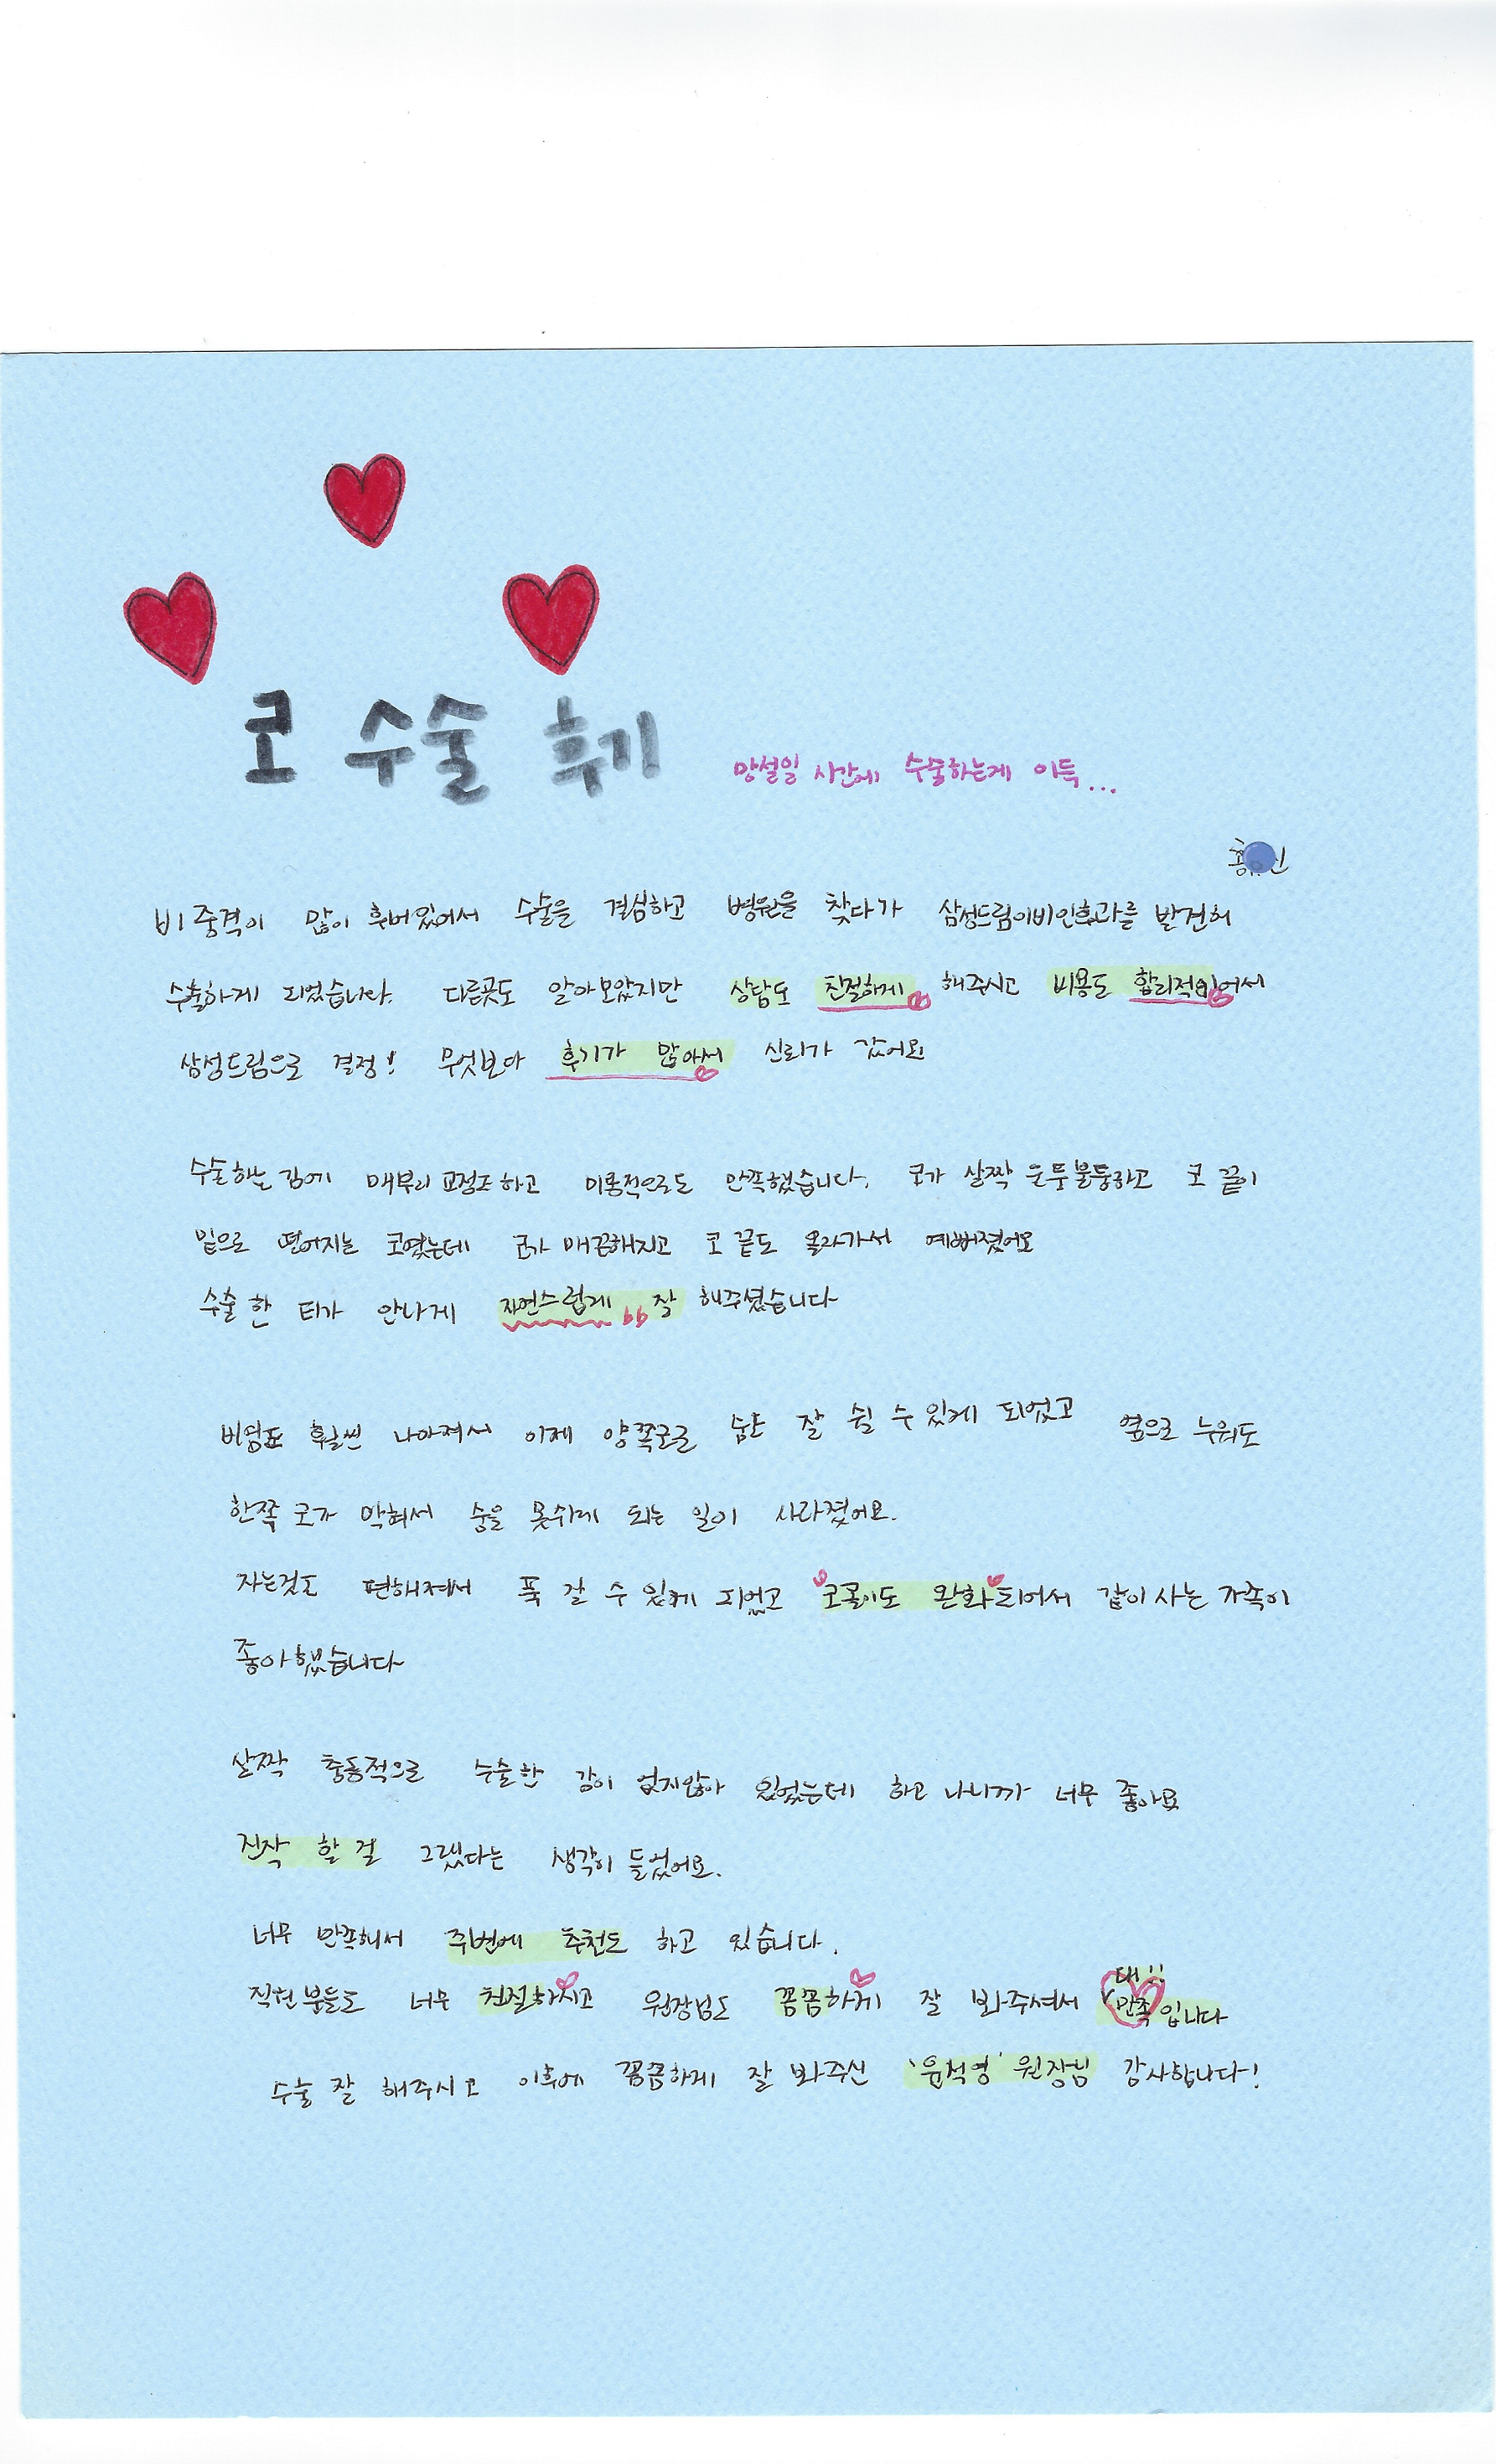 코 수술 후기
망설일 시간에 수술하는게 이득...
홍 신
비중격이 많이 휘어있어서 수술을 결심하고 병원을 찾다가 삼성드림이비인후과를 발견해
수술하게 되었습니다. 다른곳도 알아보았지만 상담도 친절하게 해주시고 비용도 합리적이어서
삼성드림으로 결정! 무엇보다 후기가 많아서 신뢰가 갔어요
수술하는 김에 매부리 교정도 하고 미용적으로도 만족했습니다. 코가 살짝 울퉁불퉁하고 코 끝이
밑으로 떨어지는 코였는데 코가 매끈해지고 코 끝도 올라가서 예뻐졌어요
수술 한 티가 안나게 자연스럽게 잘 해주셨습니다
비염도 훨씬 나아져서 이제 양쪽코로 숨도 잘 쉴 수 있게 되었고 옆으로 누워도
한쪽 코가 막혀서 숨을 못쉬게 되는 일이 사라졌어요.
자는것도 편해져서 푹 잘 수 있게 되었고 코골이도 완화되어서 같이 사는 가족이
좋아했습니다
살짝 충동적으로 수술한 감이 없지않아 있었는데 하고 나니까 너무 좋아요
진작 할 걸 그랬다는 생각이 들었어요.
너무 만족해서 주변에 추천도 하고 있습니다.
직원분들도 너무 친절하시고 원장님도 꼼꼼하게 잘 봐주셔서 대!! 만족입니다
수술 잘 해주시고 이후에 꼼꼼하게 잘 봐주신 '윤석영' 원장님 감사합니다!